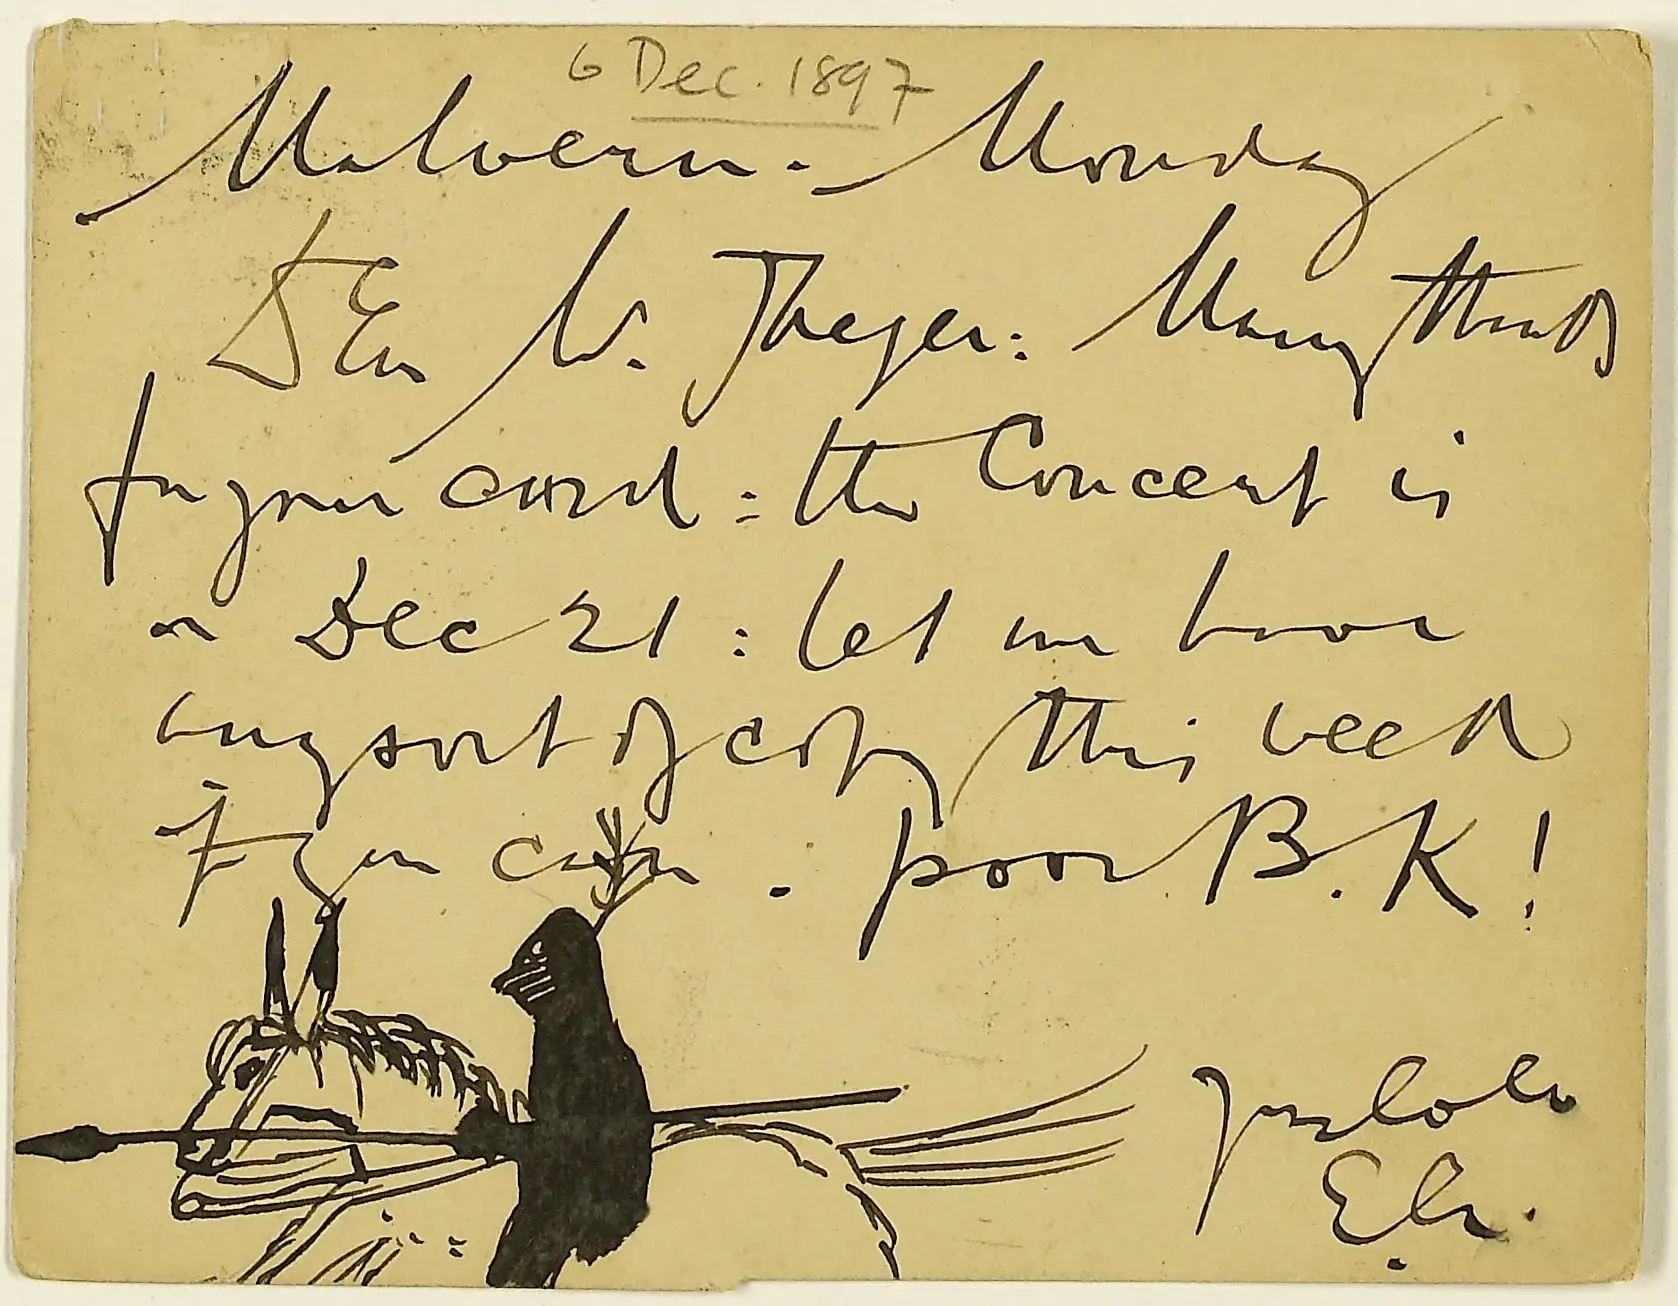 6 Dec. 1897
Malvern. Monday
Dear Mr. Jaeger: Many thanks
for your card: the Concert is
on Dec 21: let me have
any sort of copy this week
if you can. poor B.K!
Yrs
E.E.